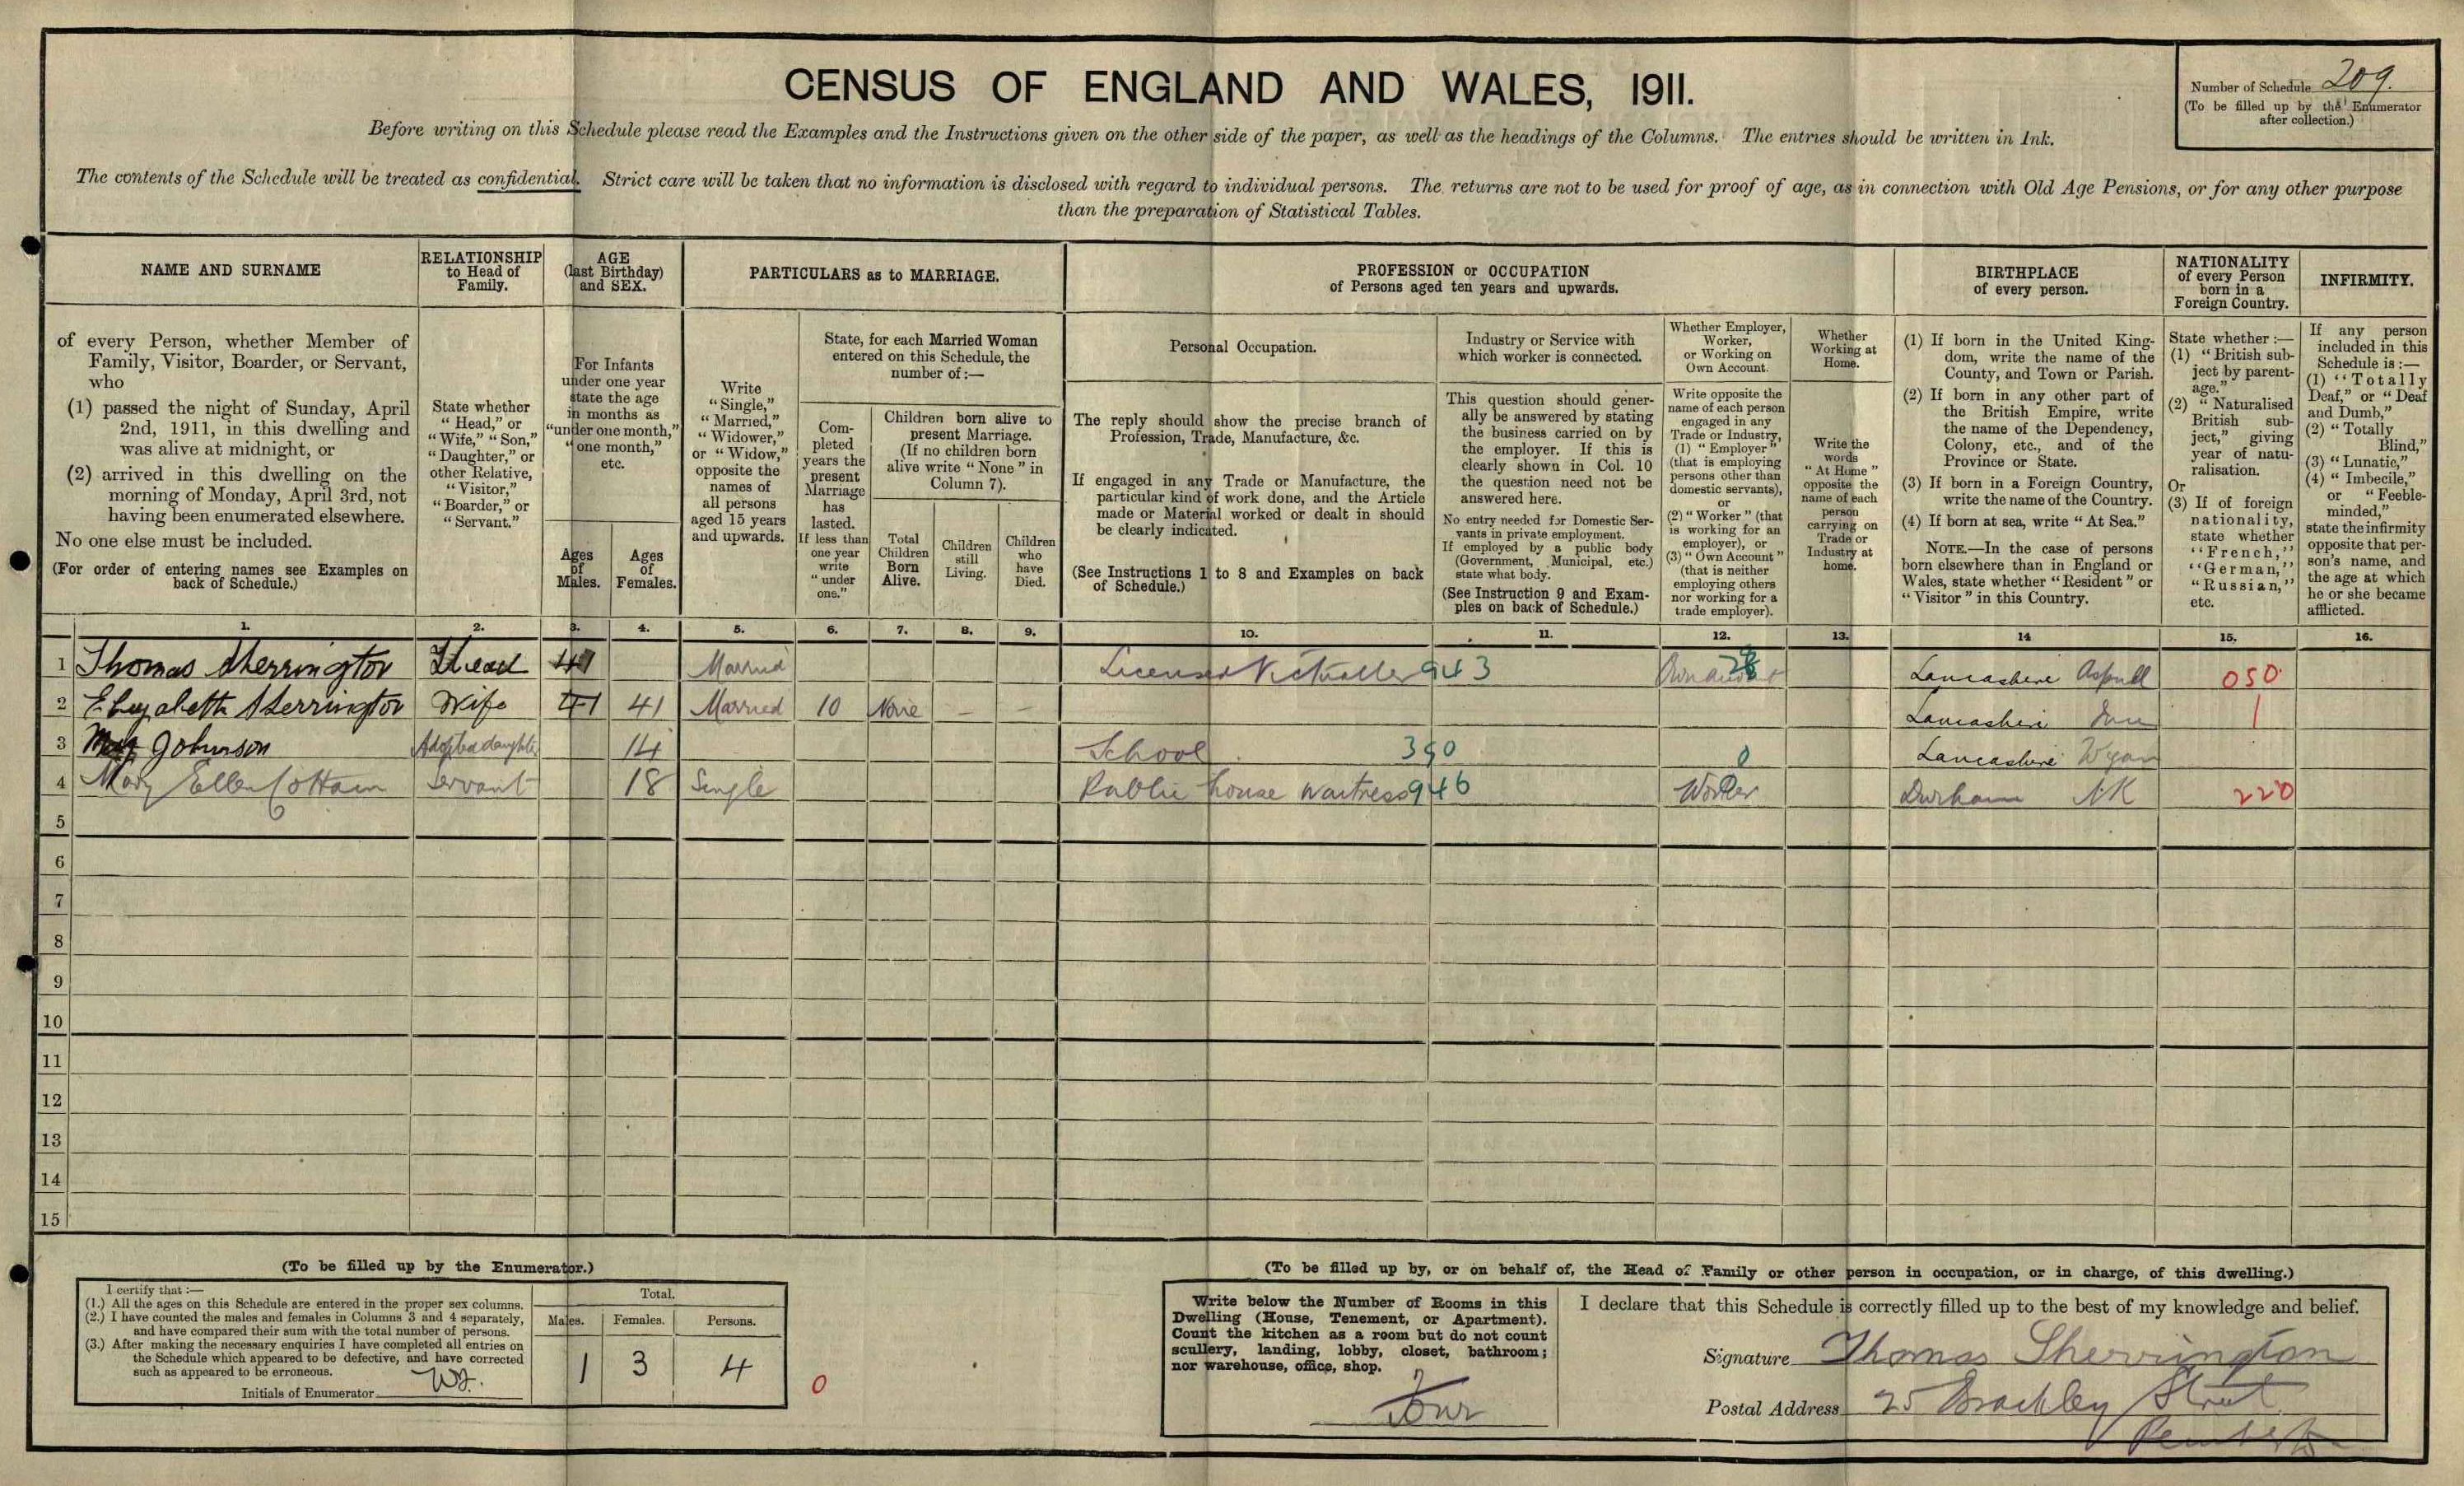 CENSUS OF ENGLAND AND WALES, 1911.
Number of Schedule 209.
(To be filled up by the Enumerator
after collection.)
Before writing on this Schedule please read the Examples and the Instructions given on the other side of the paper, as well as the headings of the Columns. The entries should be written in Ink.
The contents of the Schedule will be treated as confidential. Strict care will be taken that no information is disclosed with regard to individual persons. The returns are not to be used for proof of age, as in connection with Old Age Pensions, or for any other purpose
than the preparation of Statistical Tables.
NAME AND SURNAME
of every Person, whether Member of
Family, Visitor, Boarder, or Servant,
who
(1) passed the night of Sunday, April
2nd, 1911, in this dwelling and
was alive at midnight, or
(2) arrived in this dwelling on the
morning of Monday, April 3rd, not
having been enumerated elsewhere.
No one else must be included.
(For order of entering names see Examples on
back of Schedule.)
RELATIONSHIP
to Head of
Family.
State whether
"Head," or
"Wife," "Son,"
"Daughter," or
other Relative,
"Visitor,"
"Boarder," or
"Servant."
AGE
(last Birthday)
and SEX.
For Infants
under one year
state the age
in months as
"under one month,"
"one month,"
etc.
Ages
of
Males.
Ages
of
Females.
PARTICULARS as to MARRIAGE.
Write
"Single,"
"Married,"
"Widower,"
or "Widow,"
opposite the
names of
all persons
aged 15 years
and upwards.
State, for each Married Woman
entered on this Schedule, the
number of :—
Com-
pleted
years the
present
Marriage
has
lasted.
If less than
one year
write
"under
one."
Children born alive to
present Marriage.
(If no children born
alive write "None" in
Column 7).
Total
Children
Born
Alive.
Children
still
Living.
Children
who
have
Died.
PROFESSION or OCCUPATION
of Persons aged ten years and upwards.
Personal Occupation.
The reply should show the precise branch of
Profession, Trade, Manufacture, &c.
If engaged in any Trade or Manufacture, the
particular kind of work done, and the Article
made or Material worked or dealt in should
be clearly indicated.
(See Instructions 1 to 8 and Examples on back
of Schedule.)
Industry or Service with
which worker is connected.
This question should gener-
ally be answered by stating
the business carried on by
the employer. If this is
clearly shown in Col. 10
the question need not be
answered here.
No entry needed for Domestic Ser-
vants in private employment.
If employed by a public body
(Government, Municipal, etc.)
state what body.
(See Instruction 9 and Exam-
ples on back of Schedule.)
Whether Employer,
Worker,
or Working on
Own Account.
Write opposite the
name of each person
engaged in any
Trade or Industry,
(1) "Employer"
(that is employing
persons other than
domestic servants),
or
(2) "Worker" (that
is working for an
employer), or
(3) "Own Account"
(that is neither
employing others
nor working for a
trade employer).
Whether
Working at
Home.
Write the
words
"At Home"
opposite the
name of each
person
carrying on
Trade or
Industry at
home.
BIRTHPLACE
of every person.
(1) If born in the United King-
dom, write the name of the
County, and Town or Parish.
(2) If born in any other part of
the British Empire, write
the name of the Dependency,
Colony, etc., and of the
Province or State.
(3) If born in a Foreign Country,
write the name of the Country.
(4) If born at sea, write "At Sea."
NOTE.—In the case of persons
born elsewhere than in England or
Wales, state whether "Resident" or
"Visitor" in this Country.
NATIONALITY
of every Person
born in a
Foreign Country.
State whether :—
(1) "British sub-
ject by parent-
age."
(2) "Naturalised
British sub-
ject," giving
year of natu-
ralisation.
Or
(3) If of foreign
nationality,
state whether
"French,"
"German,"
"Russian,"
etc.
INFIRMITY.
If any person
included in this
Schedule is :—
(1) "Totally
Deaf," or "Deaf
and Dumb,"
(2) "Totally
Blind,"
(3) "Lunatic,"
(4) "Imbecile,"
or "Feeble-
minded,"
state the infirmity
opposite that per-
son's name, and
the age at which
he or she became
afflicted.
1. 2. 3. 4. 5. 6. 7. 8. 9. 10. 11. 12. 13. 14 15. 16.
1 Thomas Sherrington Head Married Licensed Victualler 943 Own account Lancashire Aspull 050
2 Elizabeth Sherrington Wife 41 41 Married 10 None — — Lancashire 1
3 Johnson Adopted daughter 14 School 390 0 Lancashire Wigan
4 Mary Ellen Cottam Servant 18 Single Public house waitress 946 Worker Durham NK 220
5
6
7
8
9
10
11
12
13
14
15
(To be filled up by the Enumerator.)
I certify that :—
(1.) All the ages on this Schedule are entered in the proper sex columns.
(2.) I have counted the males and females in Columns 3 and 4 separately,
and have compared their sum with the total number of persons.
(3.) After making the necessary enquiries I have completed all entries on
the Schedule which appeared to be defective, and have corrected
such as appeared to be erroneous.
Initials of Enumerator
Total.
Males. Females. Persons.
1 3 4
0
(To be filled up by, or on behalf of, the Head of Family or other person in occupation, or in charge, of this dwelling.)
Write below the Number of Rooms in this
Dwelling (House, Tenement, or Apartment).
Count the kitchen as a room but do not count
scullery, landing, lobby, closet, bathroom;
nor warehouse, office, shop.
Four
I declare that this Schedule is correctly filled up to the best of my knowledge and belief.
Signature Thomas Sherrington
Postal Address 25 Brackley Street
Pemberton